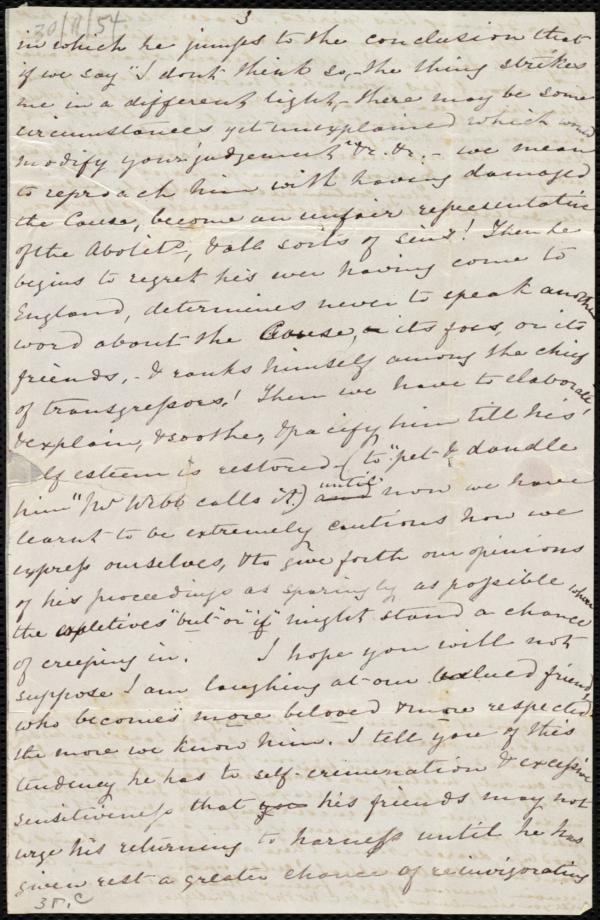 3
30/11/54
in which he jumps to the conclusion that
if we say "I dont think so,- the thing strikes
me in a different light,- there may be some
circumstances yet unexplained which would
modify your judgement" &c. &c. - we mean
to reproach him with having damaged
the Cause, become an unfair representative
of the Abolitns, & all sorts of sins! Then he
begins to regret his ever having come to
England, determines never to speak another
word about the Cause, its foes, or its
friends,- & ranks himself among the chief
of transgressors! Then we have to elaborate,
& explain, & soothe, & pacify him till his
lf esteem is restored (to "pet & dandle
him" Wm Webb calls it) and until now we have
learnt to be extremely cautious how we
express ourselves, & to give forth our opinions
of his proceedings as sparingly as possible when
the expletives "but" or "if" might stand a chance
of creeping in. I hope you will not
suppose I am laughing at our valued friend,
who becomes more beloved & more respected
the more we know him. I tell you of this
tendency he has to self-crimination & excessive
sensitiveness that his friends may not
urge his returning to harness until he has
given rest a greater chance of reinvigorating